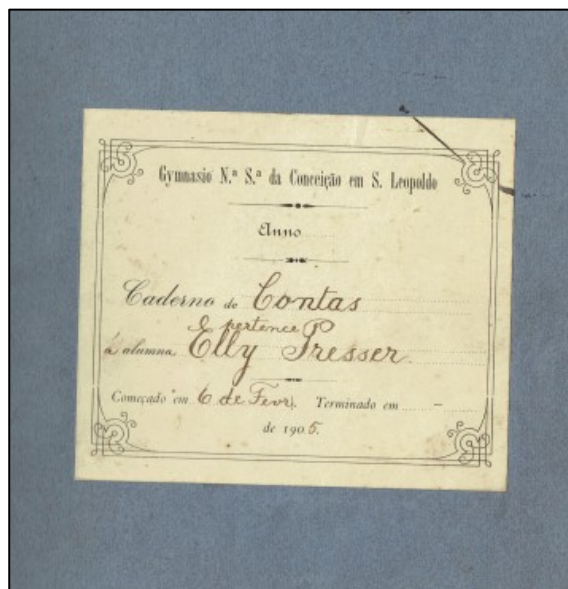 Gymnasio N.ª S.ª da Conceição em S. Leopoldo
Anno
Caderno de Contas
E pertence
á alumna Elly Presser
Começado em 6 de Fevr. Terminado em –
de 1905.